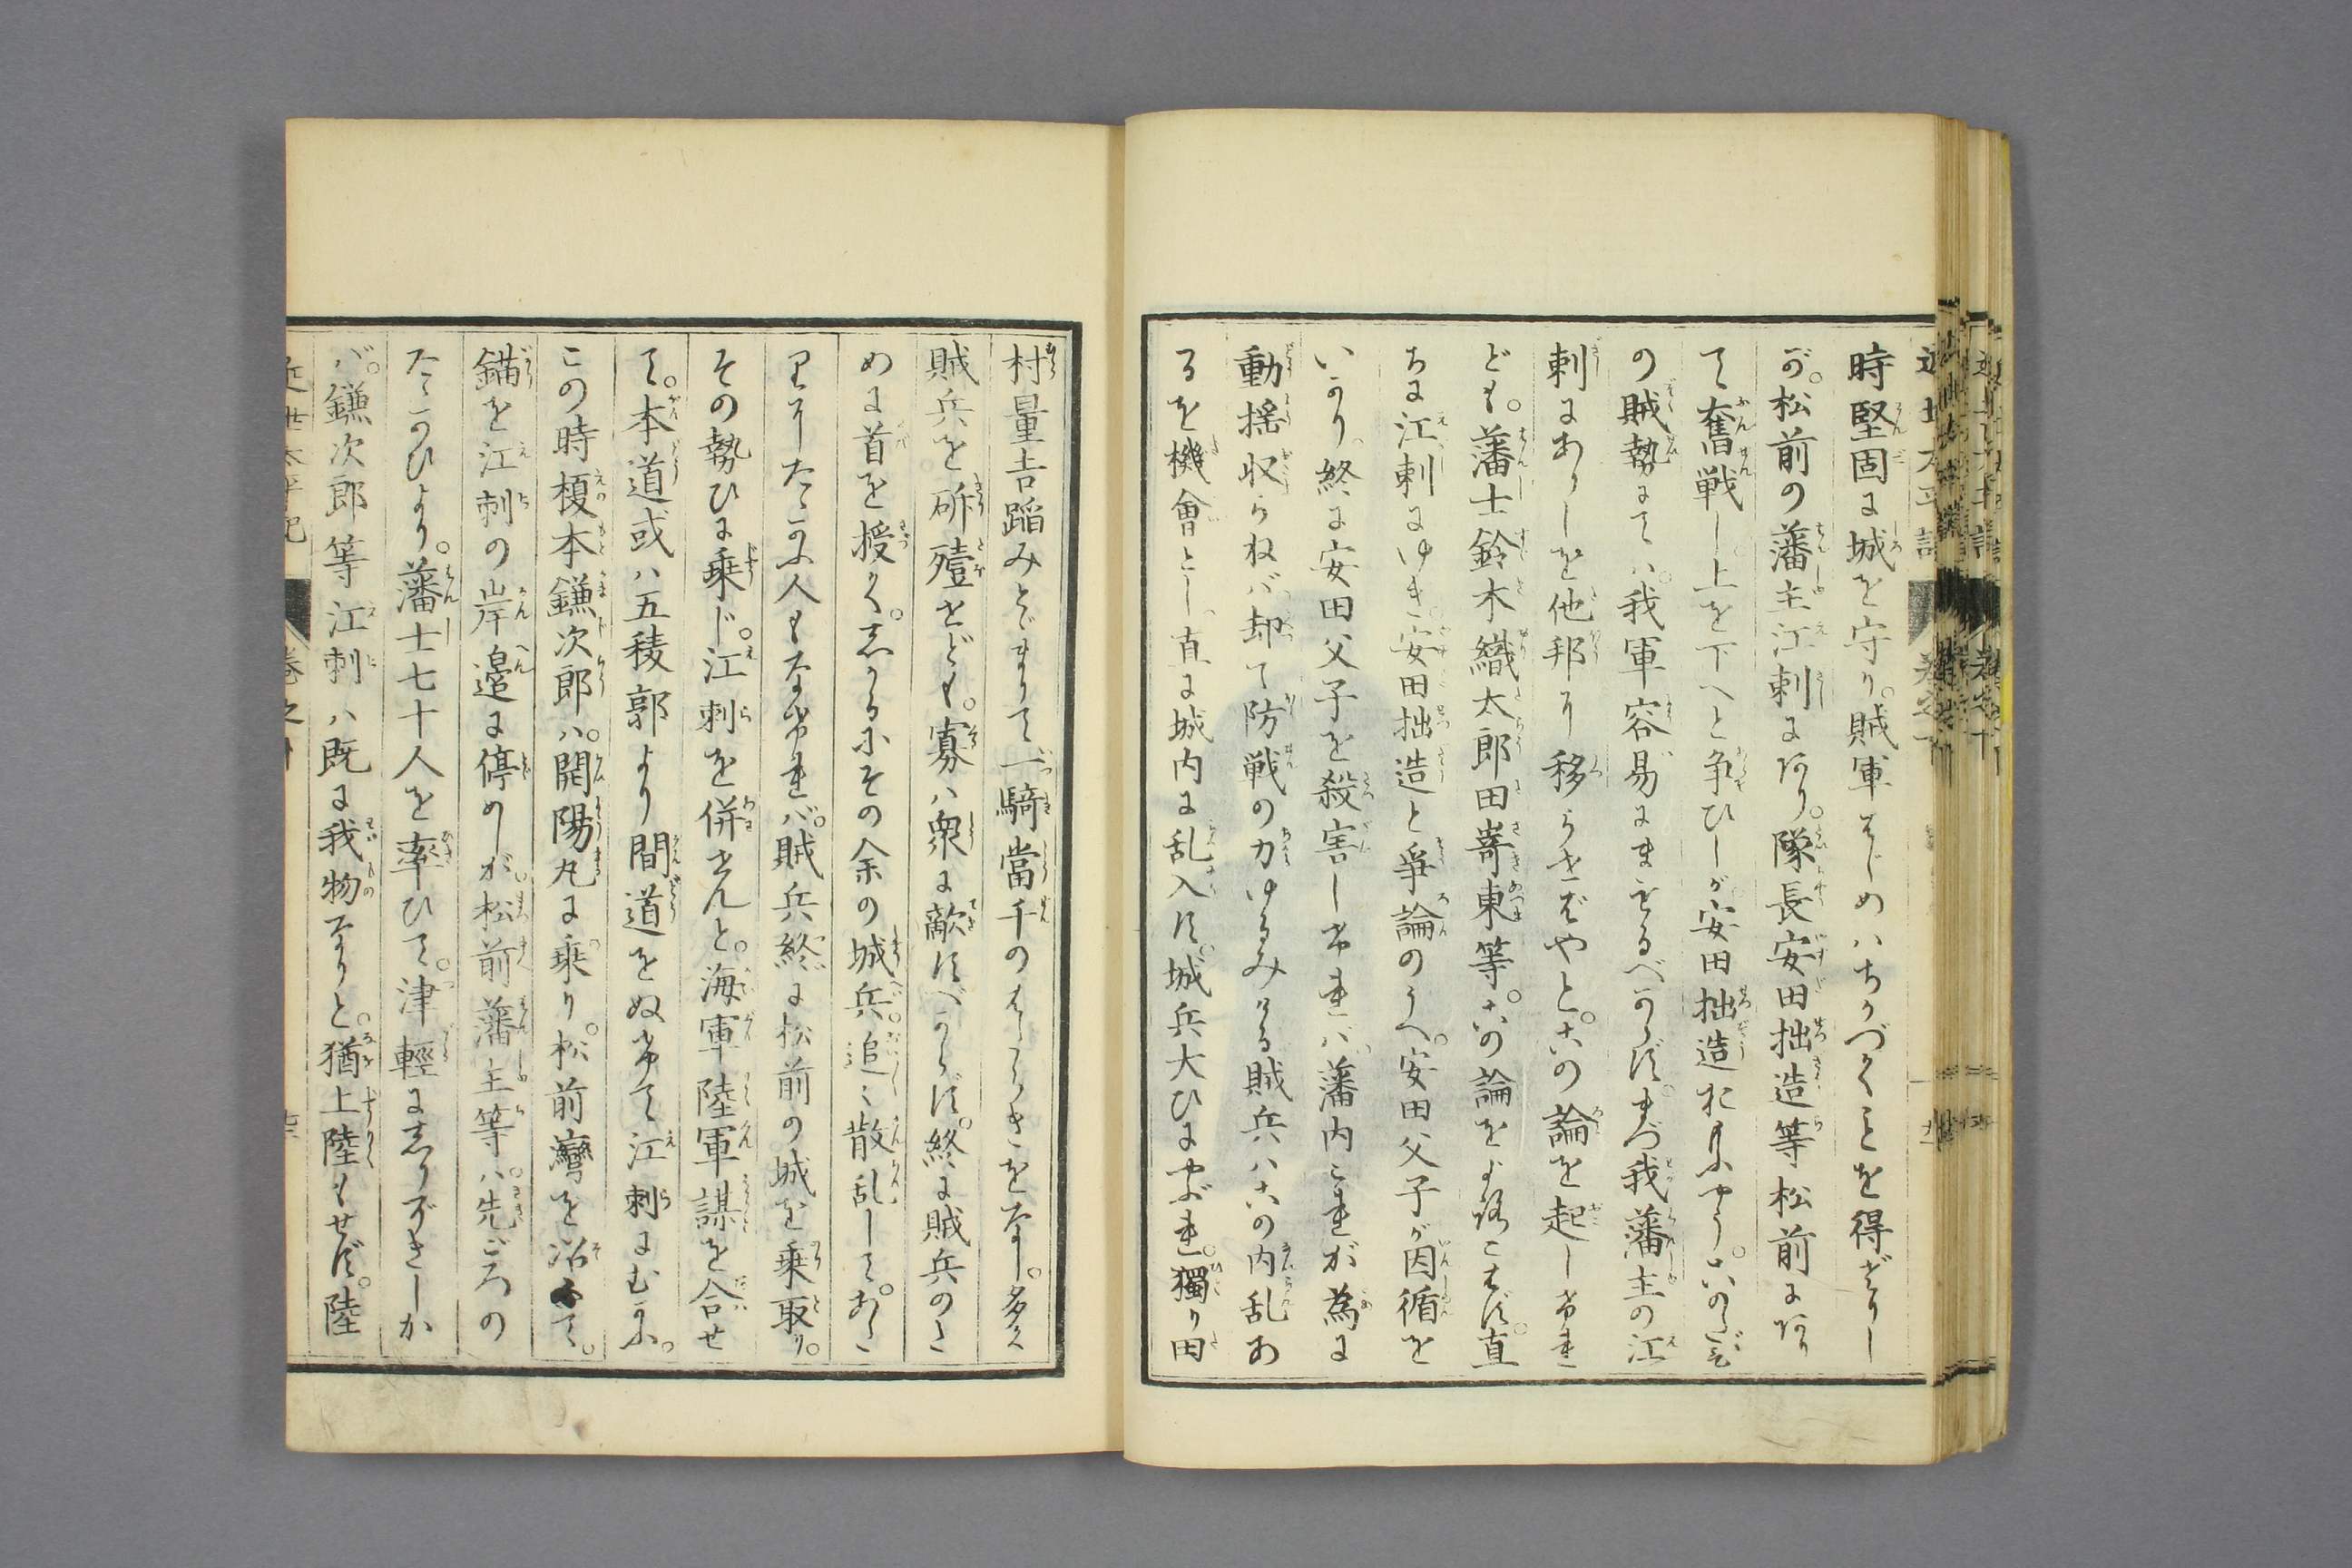 時堅固に城を守り。賊軍はじめハちかづくことを得ざりし
が。松前の藩主江刺にあり。隊長安田拙造等松前にあり
て奮戦し。上を下へと争ひしが。安田拙造おもふやう。かのごとき
の賊勢にてハ。我軍容易にまもるべからず。まづ我藩主の江
刺にありしを他邦に移らせばやと。かの論を起しけれ
ども。藩士鈴木織太郎田嵜東等。かの論をよろこばず。直
ちに江刺にゆき。安田拙造と爭論のうへ。安田父子が因循を
いかり。終に安田父子を殺害しけれバ。藩内これが為に
動揺収らねバ。却て防戦の力ゆるみける賊兵ハかの内乱あ
るを機會とし。直に城内に乱入す。城兵大ひにやぶれ。獨り田
村量吉踏みとゞまりて一騎當千のはたらきをなし。多く
賊兵を斫殪せども。寡ハ衆に敵すべからず。終に賊兵のた
めに首を授く。しかるにその余の城兵。追々散乱して。あへて
とりたゝかふ人もなければ。賊兵終に松前の城を乗取り。
その勢ひに乗じ。江刺を併せんと。海軍陸軍謀を合せ
て。本道或ハ五稜郭より間道をぬけて江刺にむかふ。
この時榎本鎌次郎ハ。開陽丸に乗り。松前灣を沿て。
錨を江刺の岸邉に停めしが。松前藩主等ハ。先ごろの
たゝかひより。藩士七十人を率ひて。津輕にしりぞきしか
バ。鎌次郎等江刺ハ既に我物なりと。猶上陸もせず。陸
近世太平記 巻之十